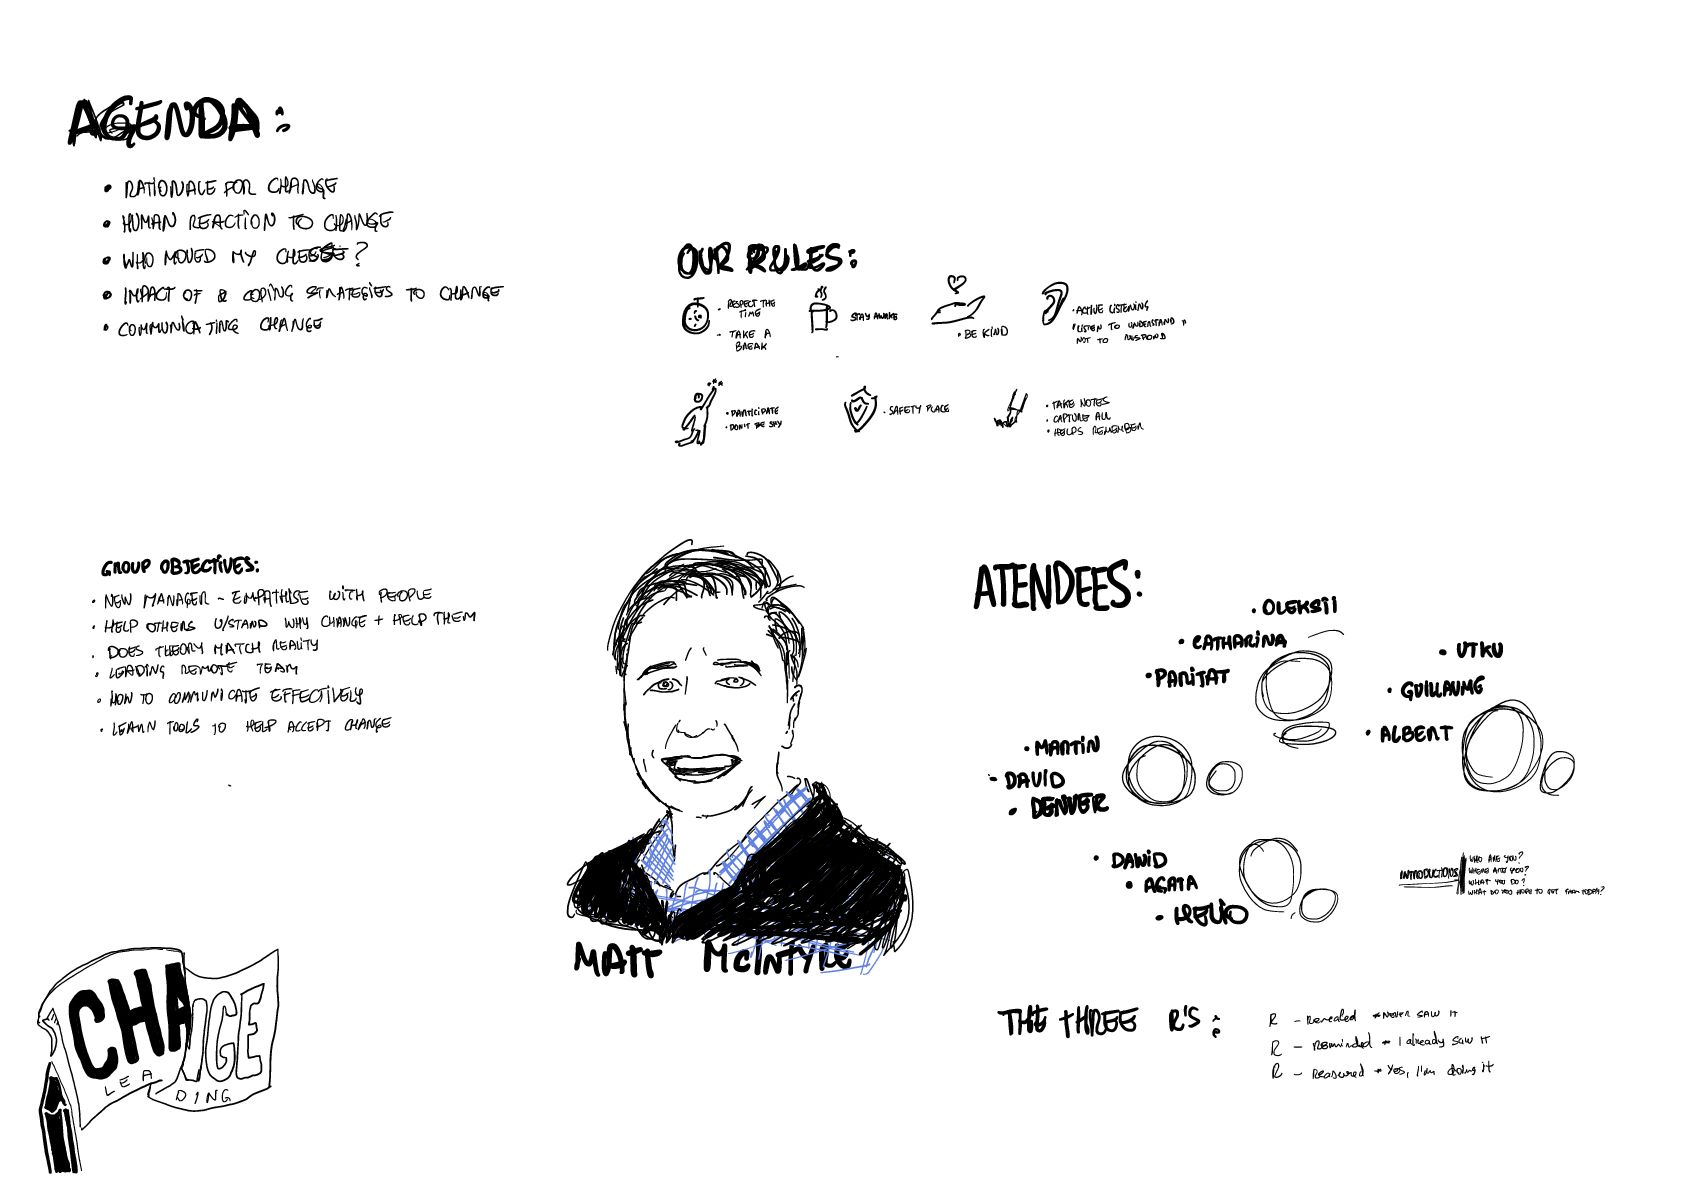 AGENDA:
• RATIONALE FOR CHANGE
• HUMAN REACTION TO CHANGE
• WHO MOVED MY CHEESE?
• IMPACT OF & COPING STRATEGIES TO CHANGE
• COMMUNICATING CHANGE
OUR RULES:
- RESPECT THE
TIME
- TAKE A
BREAK
STAY AWAKE
• BE KIND
• ACTIVE LISTENING
"LISTEN TO UNDERSTAND"
NOT TO RESPOND
• PARTICIPATE
• DON'T BE SHY
• SAFETY PLACE
• TAKE NOTES
• CAPTURE ALL
• HELPS REMEMBER
GROUP OBJECTIVES:
• NEW MANAGER - EMPATHISE WITH PEOPLE
• HELP OTHERS U/STAND WHY CHANGE + HELP THEM
• DOES THEORY MATCH REALITY
• LEADING REMOTE TEAM
• HOW TO COMMUNICATE EFFECTIVELY
• LEARN TOOLS TO HELP ACCEPT CHANGE
MATT MCINTYRE
ATENDEES:
• OLEKSII
• CATHARINA
• PANITAT
• UTKU
• GUILLAUME
• ALBERT
• MARTIN
• DAVID
• DENVER
• DAWID
• AGATA
• HELIO
INTRODUCTIONS
WHO ARE YOU?
WHERE ARE YOU?
WHAT YOU DO?
WHAT DO YOU HOPE TO GET FROM TODAY?
THE THREE R'S:
R - Revealed * NEVER SAW IT
R - Reminded * I already saw IT
R - Reassured * Yes, I'm doing it
CHANGE
LEADING